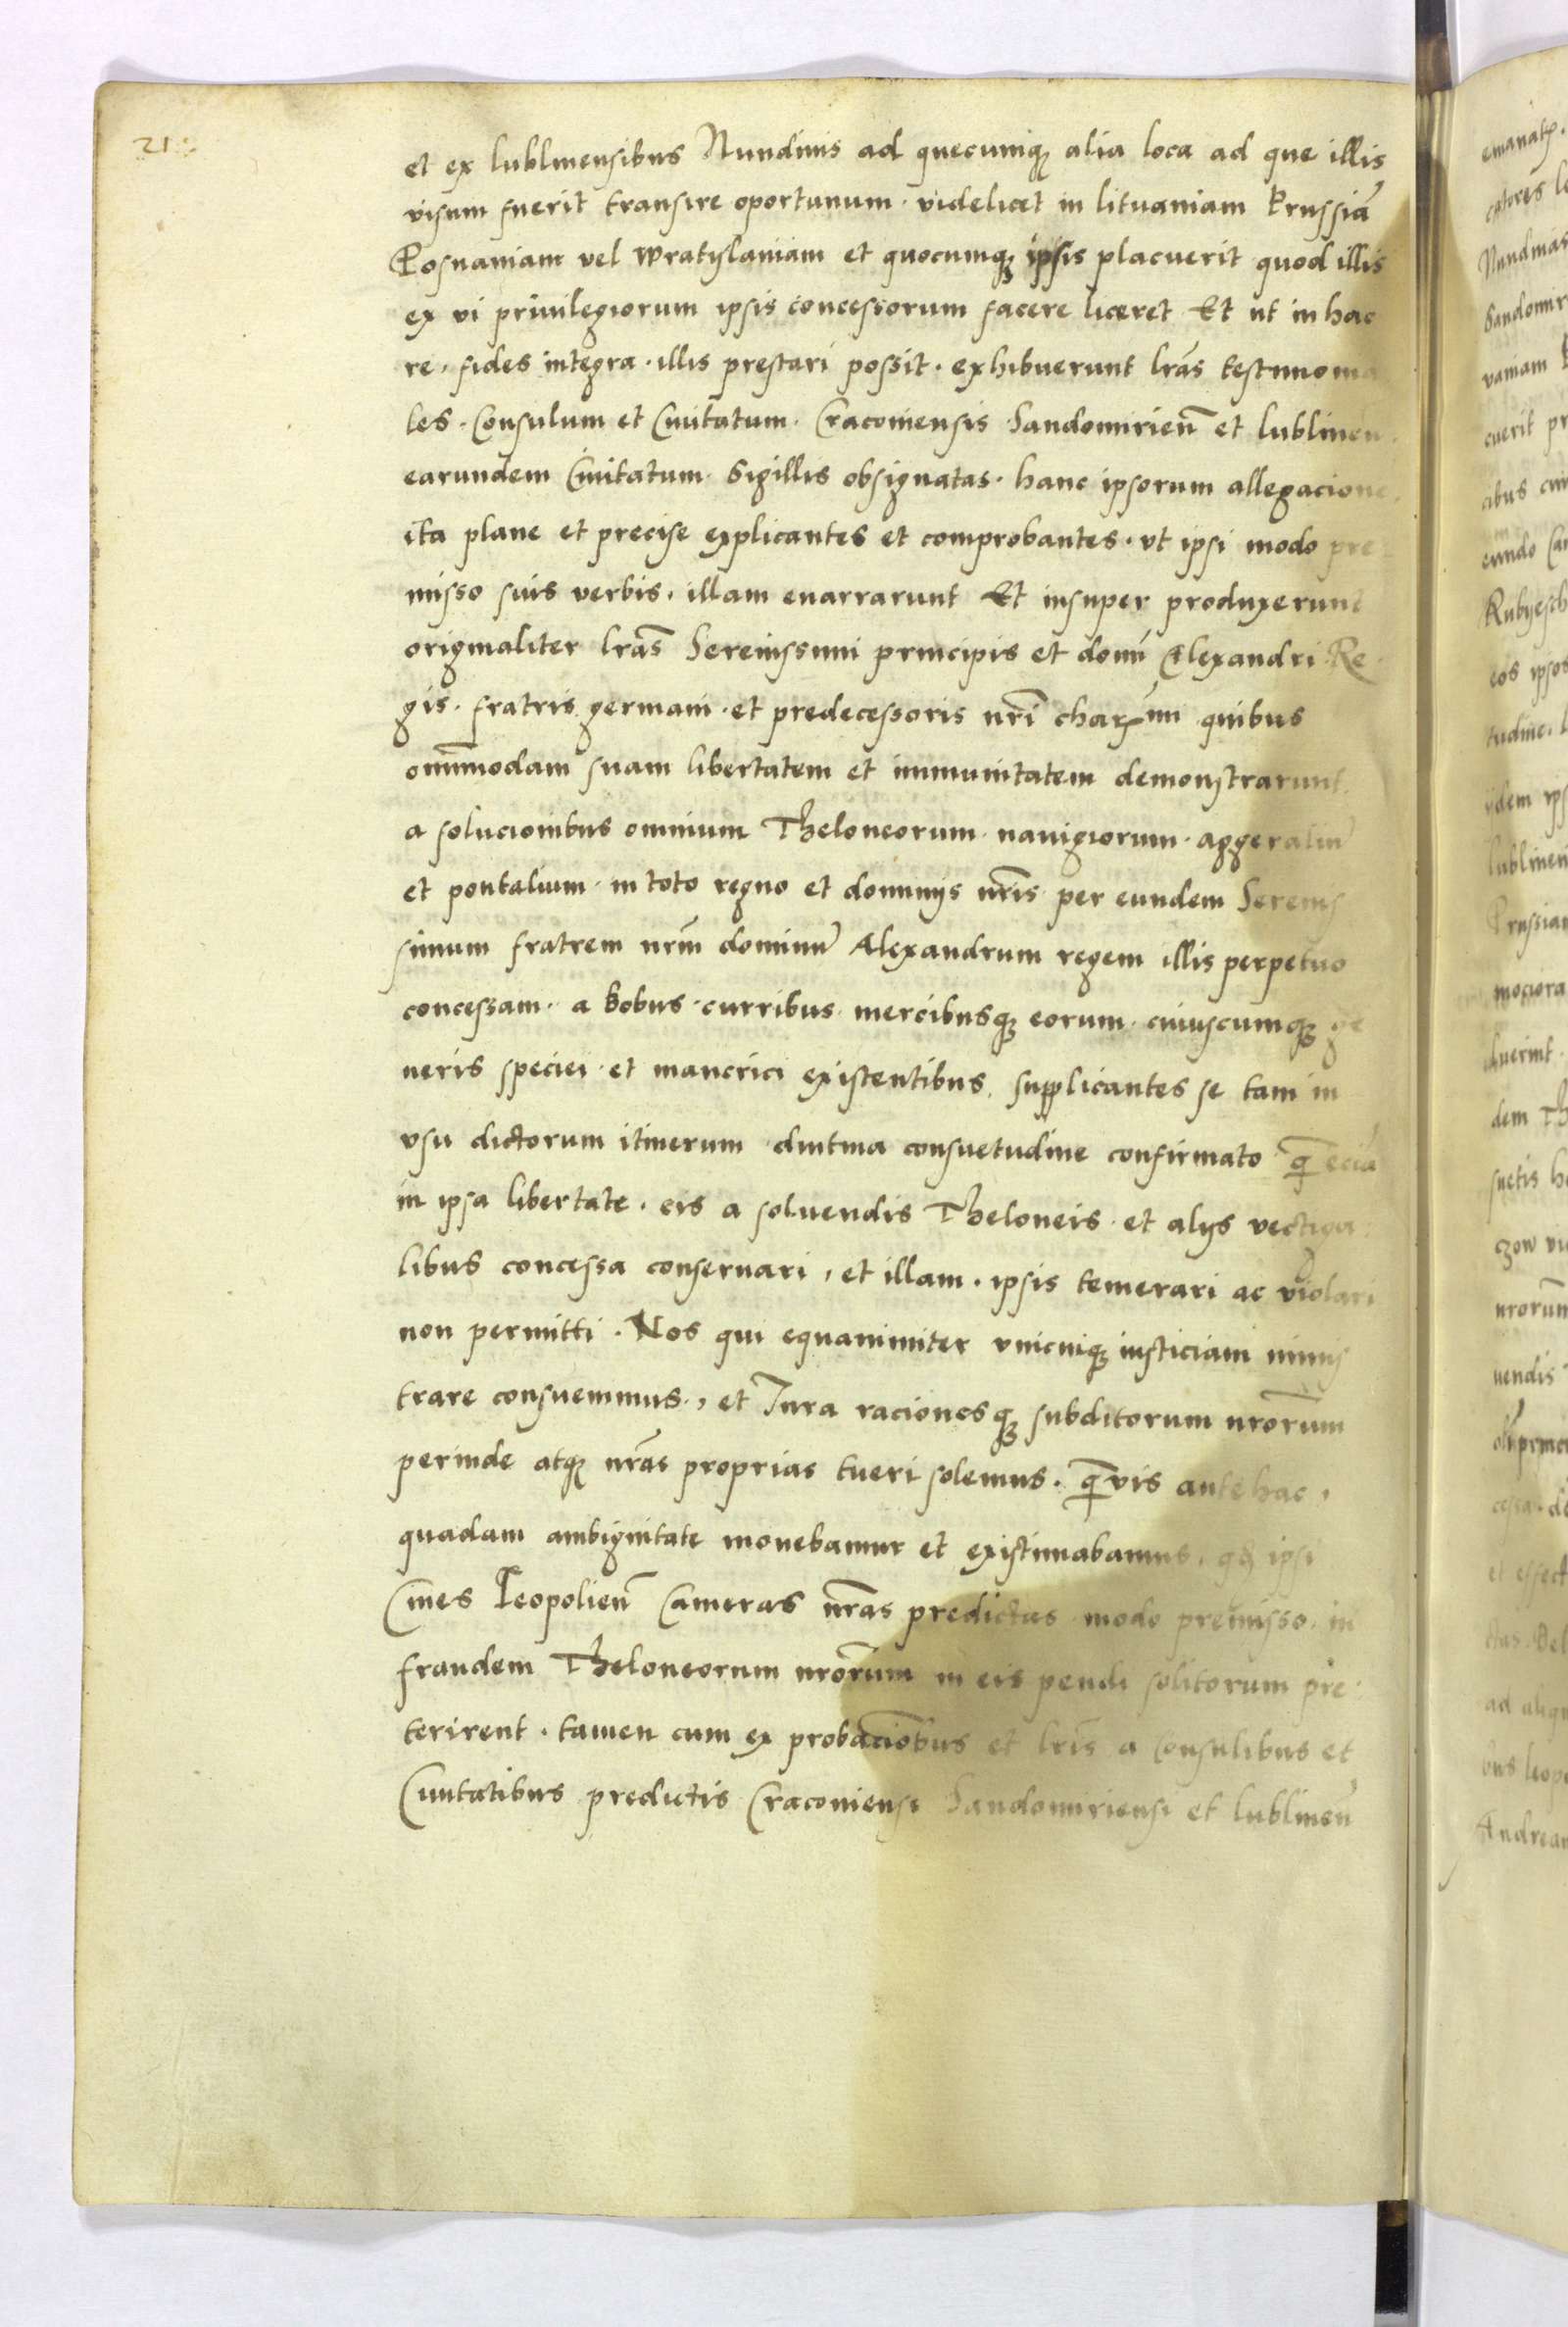 21
et ex lublinensibus Nundinis ad quecunq; alia loca ad que illis
visum fuerit transire oportunum · videlicet in lituaniam Prussiā
Posnaniam vel Wratislaviam et quocumq; ipsis placuerit quod illis
ex vi privilegiorum ipsis concessorum facere liceret Et ut in hac
re · fides integra · illis prestari possit · exhibuerunt lr̄as testimonia
les · Consulum et Civitatum · Cracoviensis Sandomirieñ et lublineñ ·
earundem Civitatum · Sigillis obsignatas · hanc ipsorum allegacione
ita plane et precise explicantes et comprobantes · ut ipsi modo pre
misso suis verbis · illam enarrarunt Et insuper produxerunt
originaliter lr̄as Serenissimi principis et domī Alexandri Re
gis · fratris germani · et predecessoris nr̄i charimi quibus
omīmodam suam libertatem et immunitatem demonstrarunt
a solucionibus omnium Theloneorum · navigiorum · aggeraliū
et pontalium · in toto regno et dominijs nr̄is per eundem Serenis
simum fratrem nr̄m dominū Alexandrum regem illis perpetuo
concessam · a bobus · curribus mercibusq; eorum · cuiuscumq; ge
neris speciei · et manerici existentibus supplicantes se tam in
usu dictorum itinerum diutina consuetudine confirmato q̄ eciā
in ipsa libertate · eis a solvendis Theloneis · et alijs vectiga
libus concessa conservari, et illam · ipsis temerari ac violari
non permitti · Nos qui equanimiter unicuiq; iusticiam minis
trare consuevimus · , et Jura racionesq; subditorum nr̄orum
perinde atq; nr̄as proprias tueri solemus · q̄vis antehac ,
quadam ambiguitate movebamur et existimabamus · ipsi
Cives Leopolieñ Cameras nr̄as predictas modo premisso · in
fraudem Theloneorum nr̄orum in eis pendi solitorum pre
terirent · tamen cum ex probaciōbus et lr̄is a Consulibus et
Civitatibus predictis Cracoviensi Sandomiriensi et lublineñ